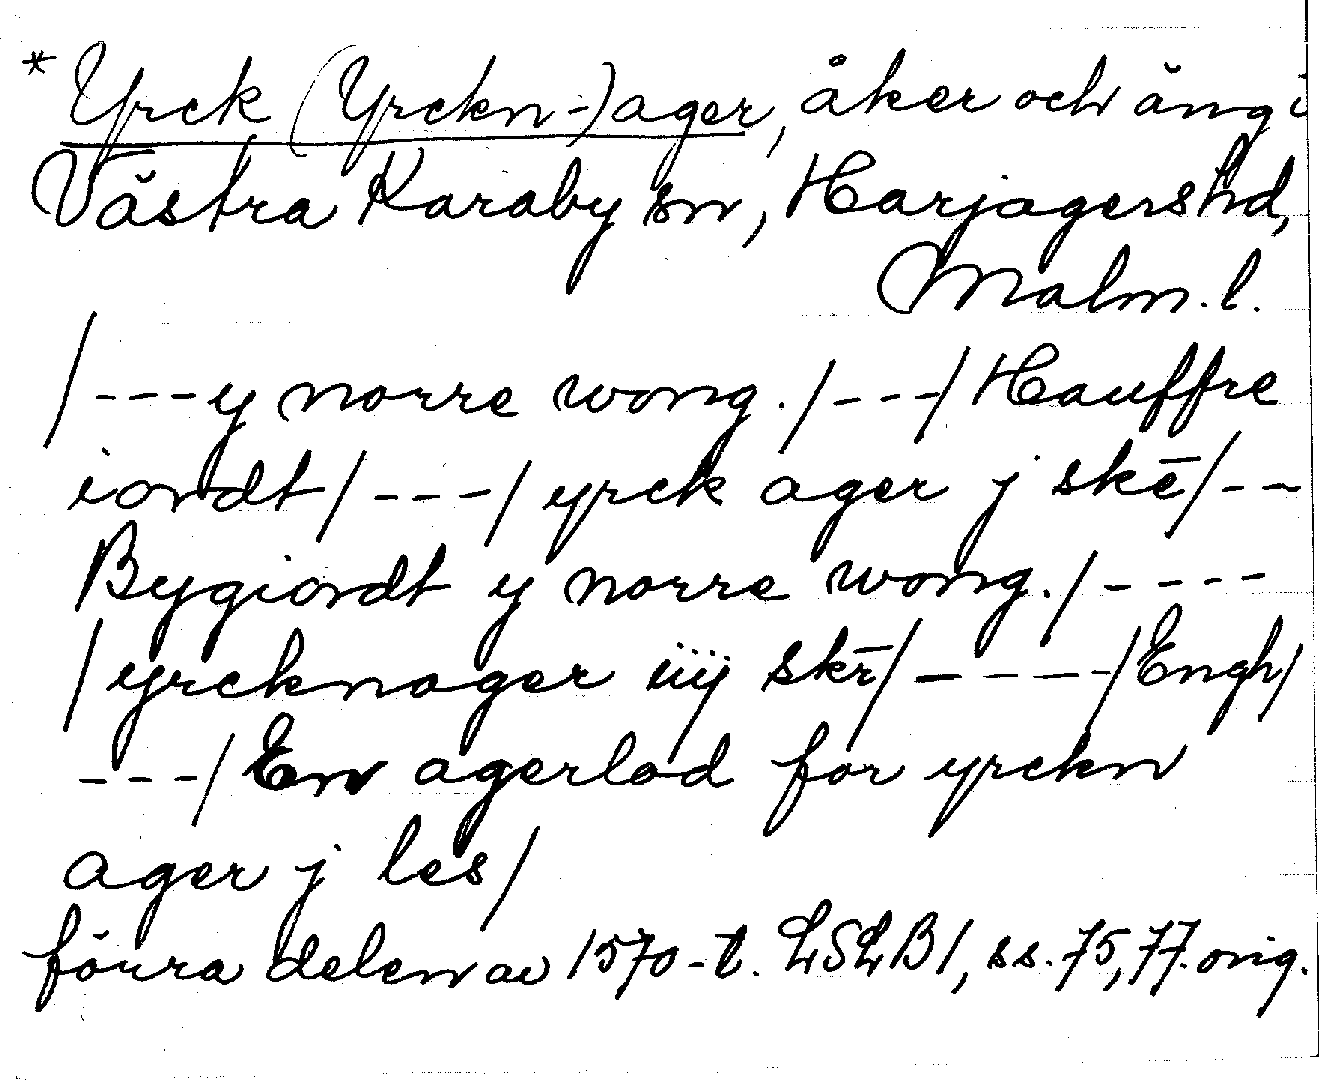 * Yrck (Yrckn-)ager, åker och äng i
Västra Karaby sn, Harjagers hd,
Malm. l.
/---y norre wong./---/Hauffre
iordt/---/yrck ager j skē/--
Bygiordt y norre wong./----
/yrcknager iiij skr̄/----/Engh/
---/En agerlod for yrckn
ager j les/
förra delen av 1570-t. LSLB1, ss. 75, 77. orig.